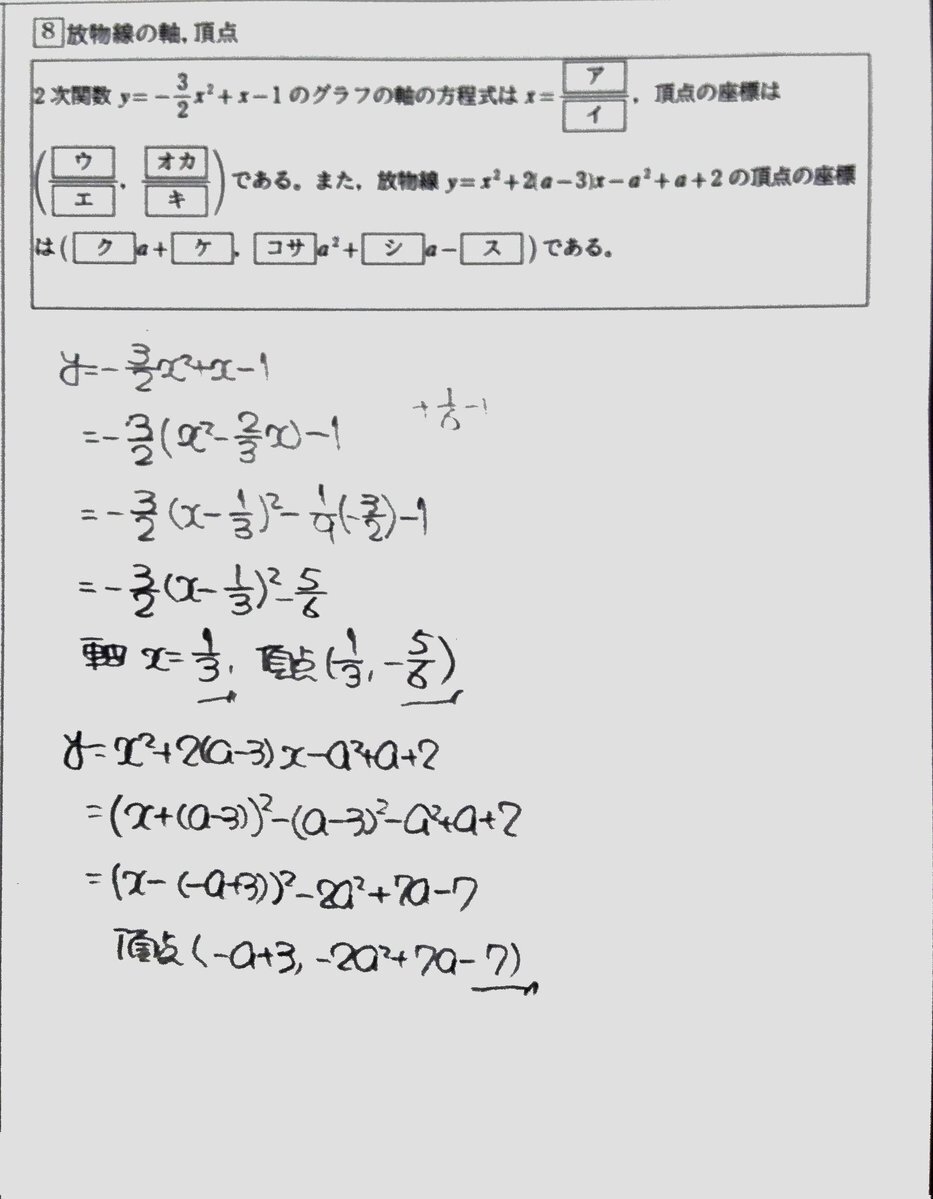 8 放物線の軸，頂点
2次関数 y=-3/2x²+x-1 のグラフの軸の方程式は x=ア/イ，頂点の座標は
(ウ/エ，オカ/キ)である。また，放物線 y=x²+2(a-3)x-a²+a+2 の頂点の座標
は(ク a+ケ，コサ a²+シ a-ス)である。
y=-3/2x²+x-1
+1/6-1
=-3/2(x²-2/3x)-1
=-3/2(x-1/3)²-1/9(-3/2)-1
=-3/2(x-1/3)²-5/6
軸 x=1/3，頂点(1/3，-5/6)
y=x²+2(a-3)x-a²+a+2
=(x+(a-3))²-(a-3)²-a²+a+2
=(x-(-a+3))²-2a²+7a-7
頂点(-a+3，-2a²+7a-7)